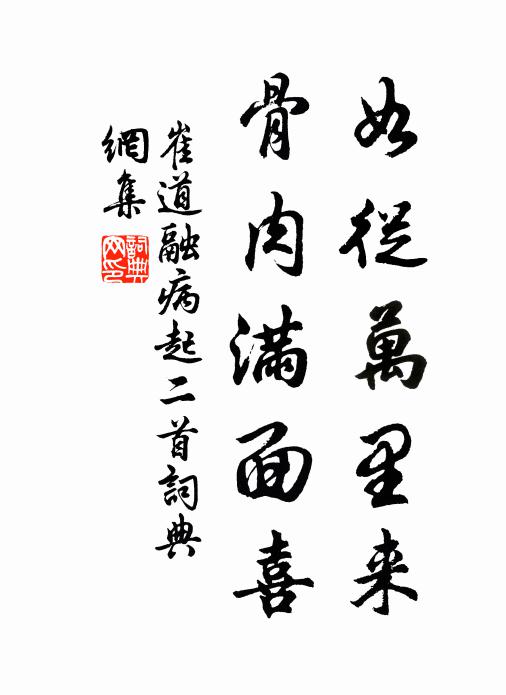 如從萬里来
骨肉滿面喜
崔道融病起二首詞典
網集
詞典
网印